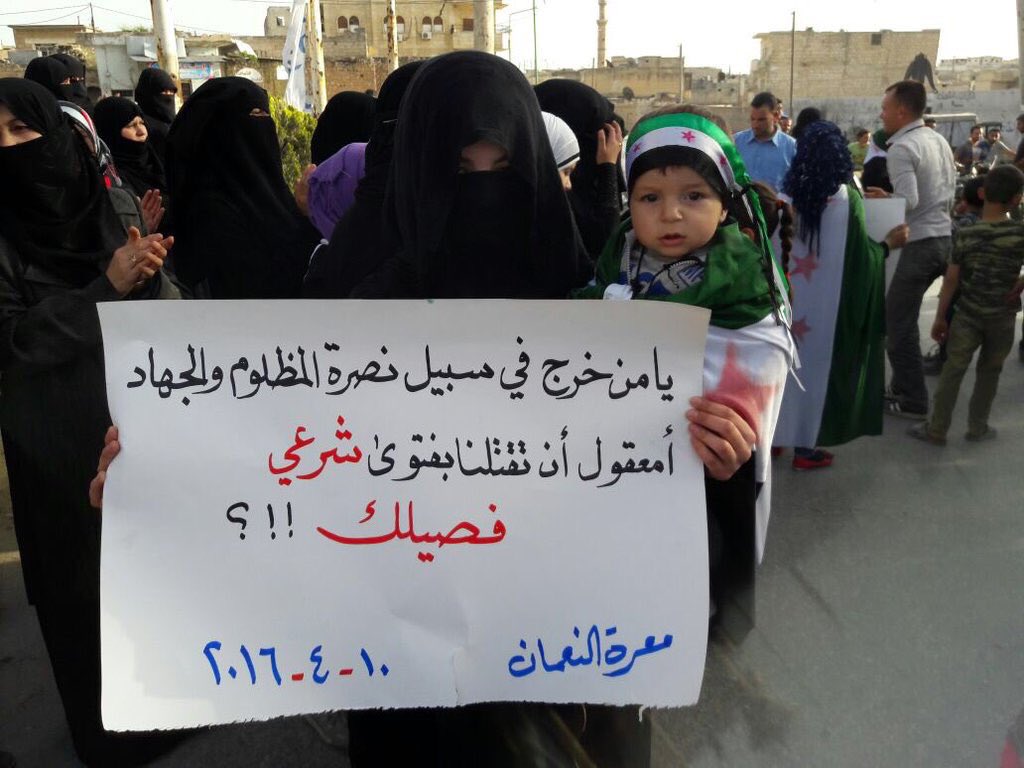 يا من خرج في سبيل نصرة المظلوم والجهاد
أمعقول أن تقتلنا بفتوىٰ شرعي
فصيلك !!؟
معرة النعمان ١٠-٤-٢٠١٦